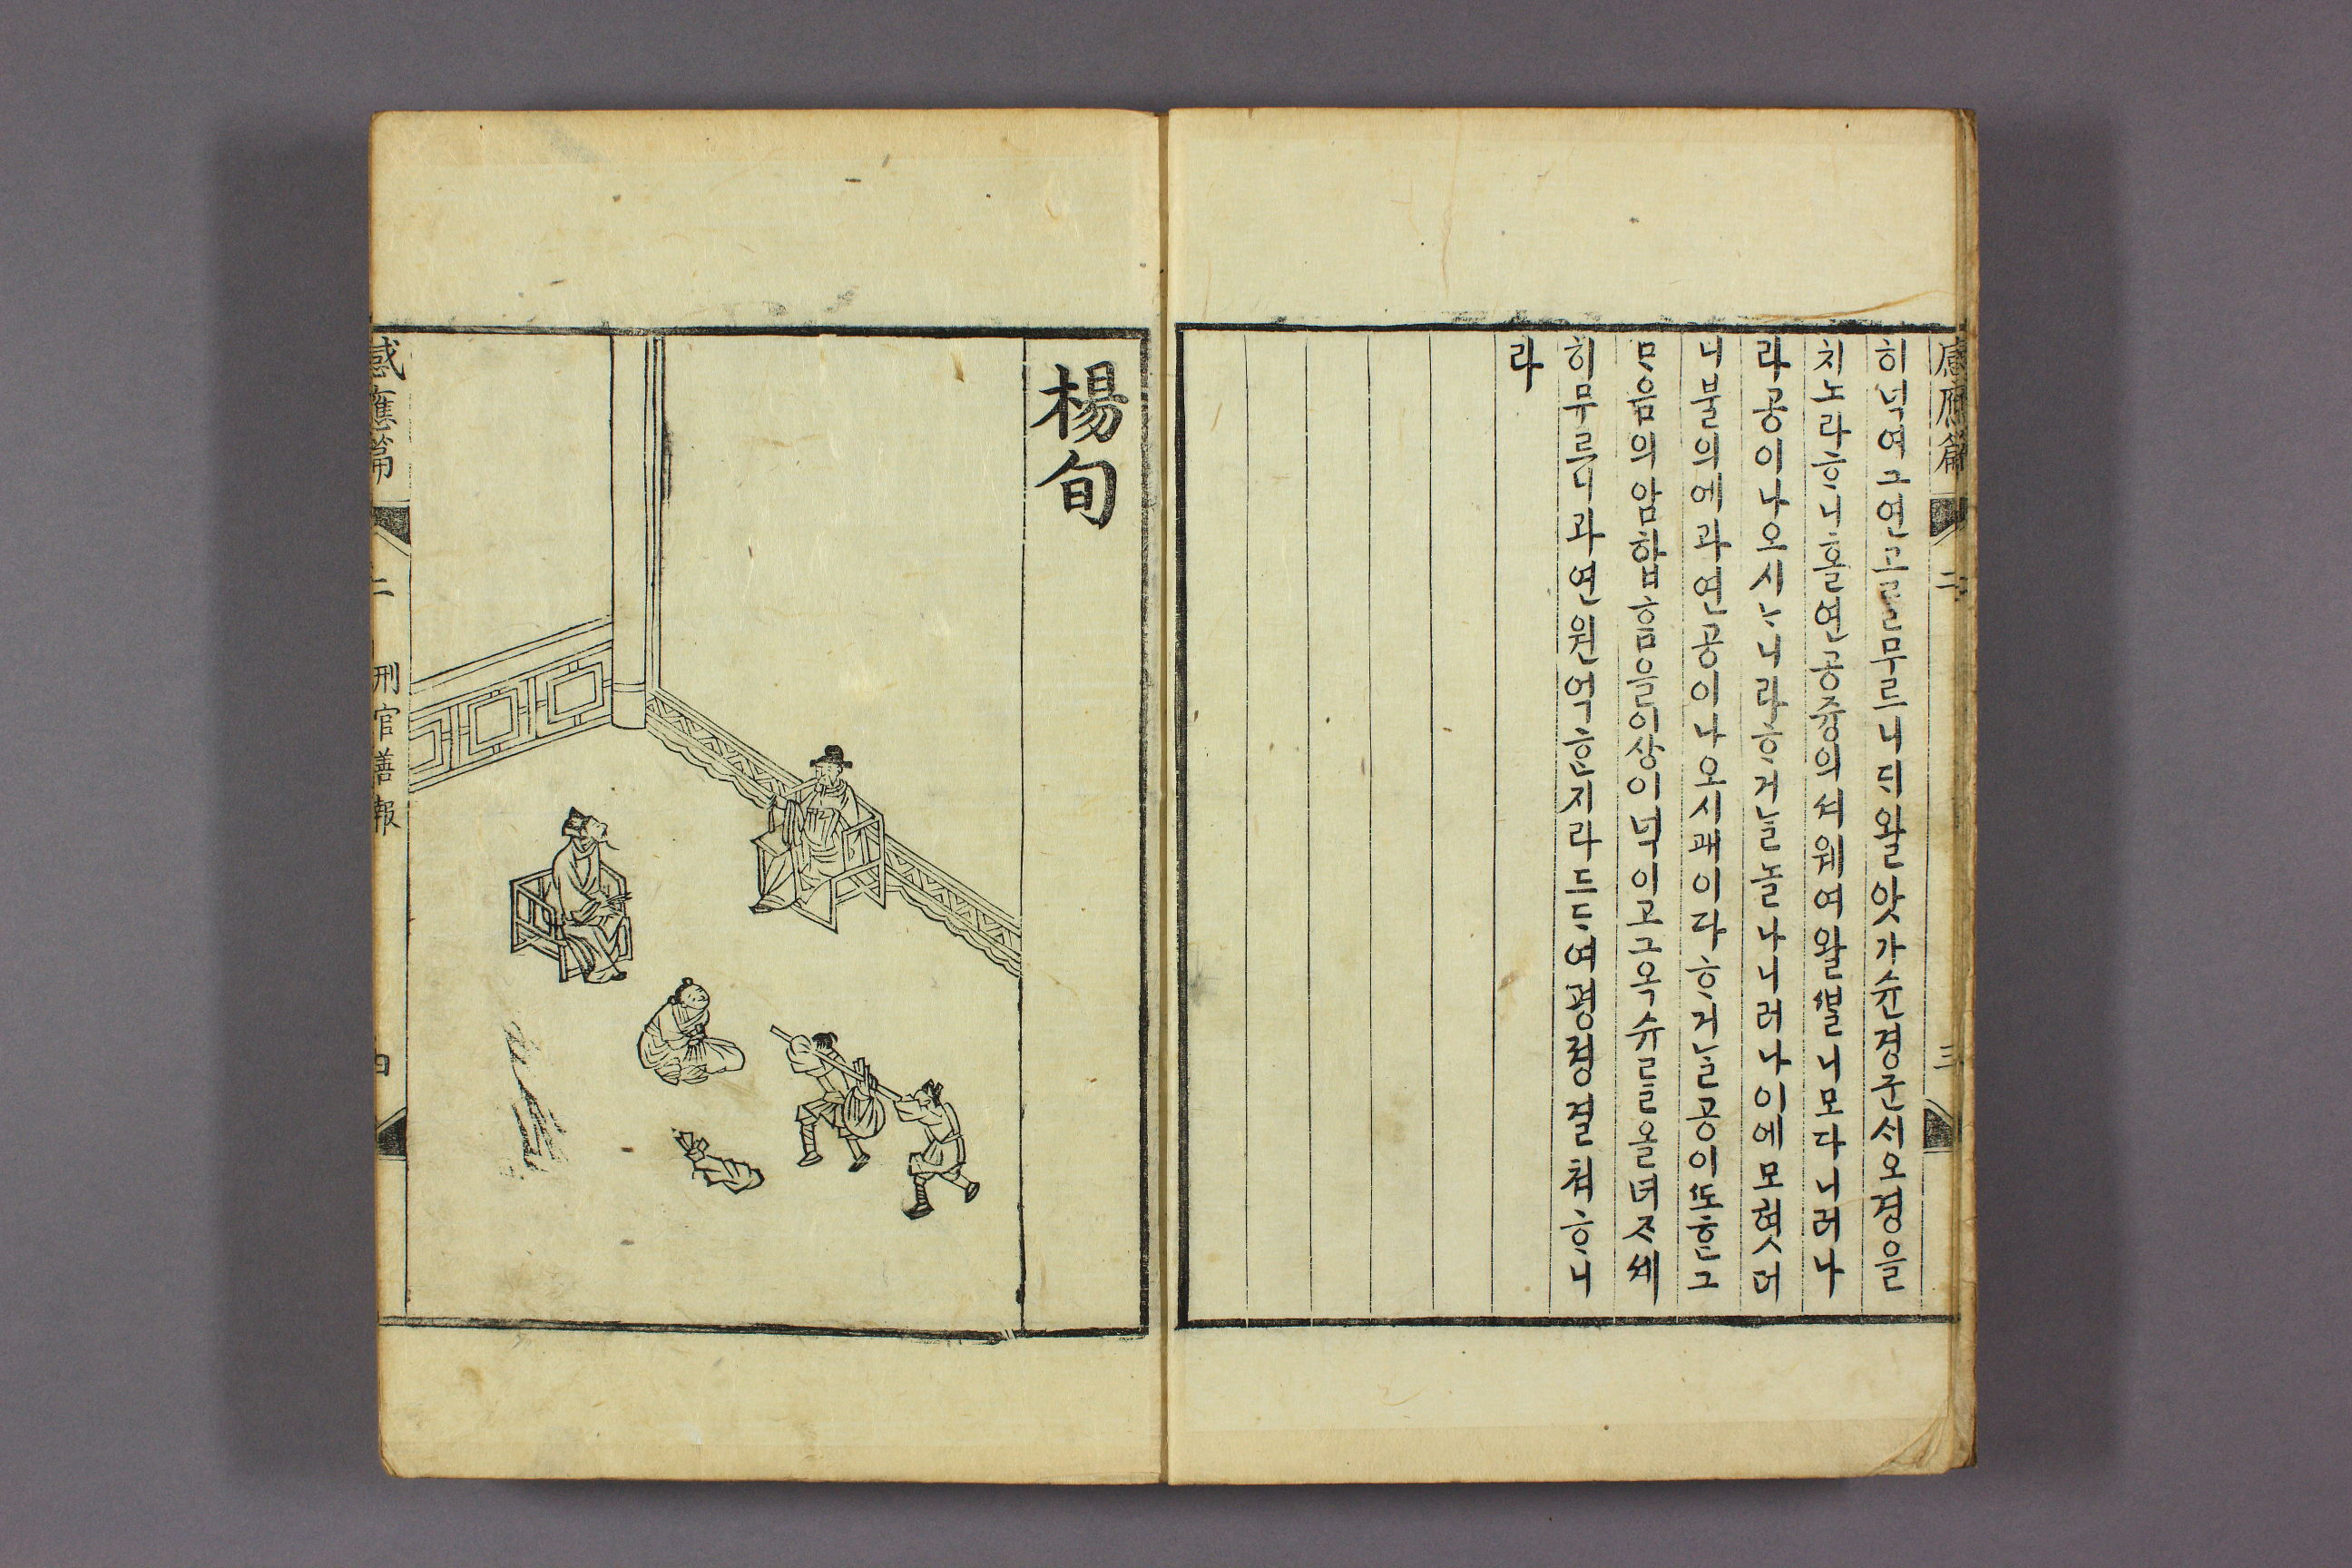 感應篇 二 三
히넉여그연고를무르니ᄃᆡ왈앗가슌경군시오경을
치노라ᄒᆞ니홀연공즁의셔웨여왈ᄲᆞᆯ니모다니러나
라공이나오시ᄂᆞ니라ᄒᆞ거ᄂᆞᆯ놀나니러나이에모혓더
니불의에과연공이나오시괘이라ᄒᆞ거ᄂᆞᆯ공이ᄯᅩᄒᆞᆫ그
ᄆᆞ음의암합ᄒᆞᆷ을이상이넉이고그옥슈를올녀ᄌᆞ셰
히무르니과연원억ᄒᆞᆫ지라드ᄃᆡ여평경결쳐ᄒᆞ니
라
楊旬
感應篇 二 刑官善報 四